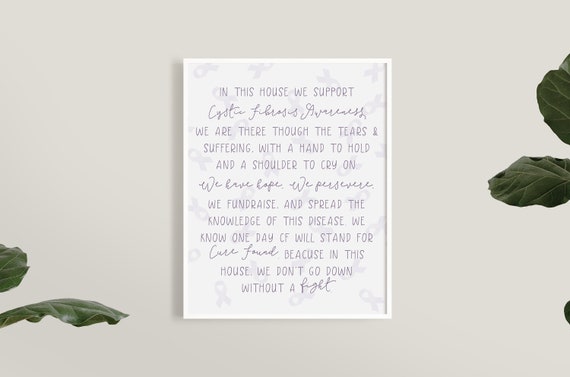 IN THIS HOUSE WE SUPPORT
Cystic Fibrosis Awareness,
WE ARE THERE THOUGH THE TEARS &
SUFFERING, WITH A HAND TO HOLD
AND A SHOULDER TO CRY ON.
We have hope. We persevere.
WE FUNDRAISE, AND SPREAD THE
KNOWLEDGE OF THIS DISEASE. WE
KNOW ONE DAY CF WILL STAND FOR
Cure Found BEACUSE IN THIS
HOUSE, WE DON'T GO DOWN
WITHOUT A fight